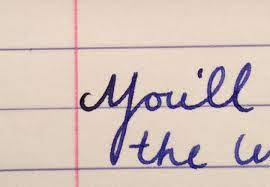 You'll
the